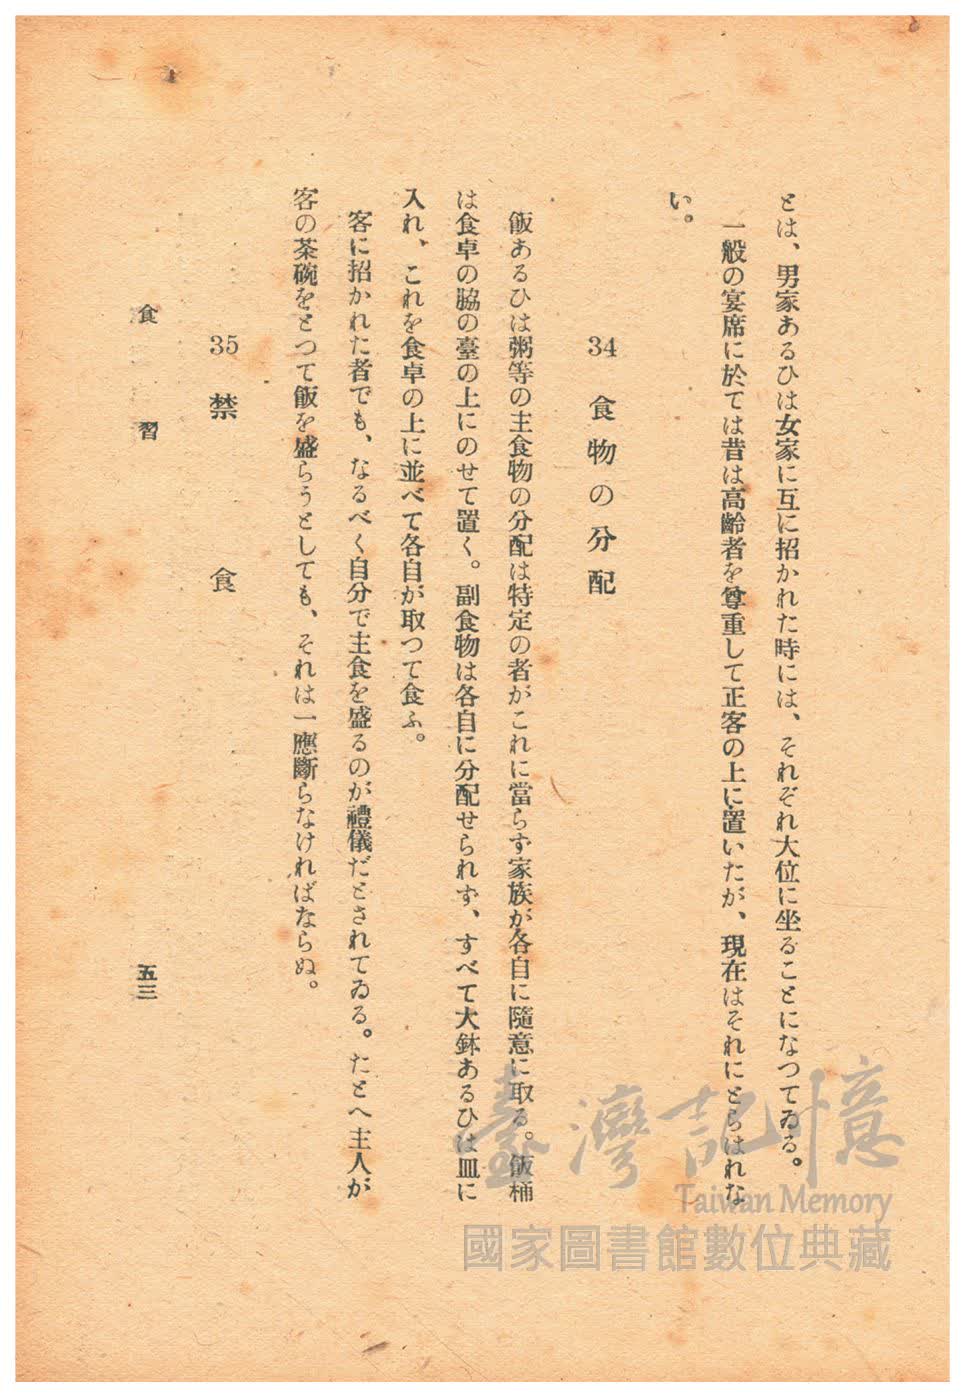 とは、男家あるひは女家に互に招かれた時には、それぞれ大位に坐ることになつてゐる。
一般の宴席に於ては昔は高齡者を尊重して正客の上に置いたが、現在はそれにとらはれな
い。
34 食物の分配
飯あるひは粥等の主食物の分配は特定の者がこれに當らず家族が各自に隨意に取る。飯桶
は食卓の脇の臺の上にのせて置く。副食物は各自に分配せられず、すべて大鉢あるひは皿に
入れ、これを食卓の上に並べて各自が取つて食ふ。
客に招かれた者でも、なるべく自分で主食を盛るのが禮儀だとされてゐる。たとへ主人が
客の茶碗をとつて飯を盛らうとしても、それは一應斷らなければならぬ。
35 禁食
食習
五三
臺灣記憶
Taiwan Memory
國家圖書館數位典藏